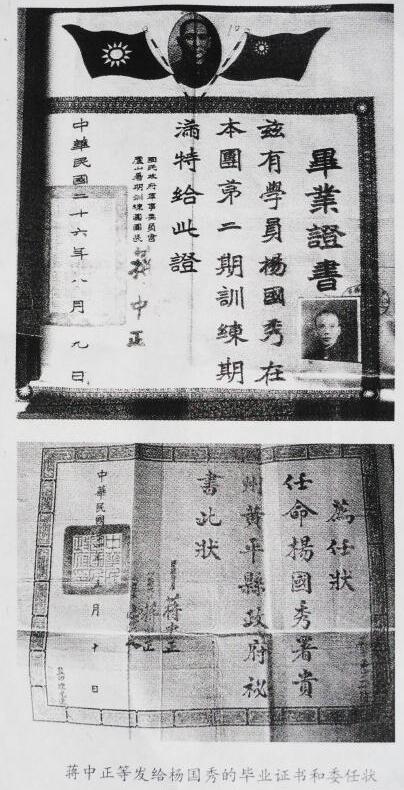 畢業證書
茲有學員楊國秀在
本團第二期訓練期
滿特給此證
國民政府軍事委員會
廬山暑期訓練團團長
蔣中正
中華民國二十六年八月九日
薦任狀
任命楊國秀署貴
州黃平縣政府秘
書此狀
蔣中正
中華民國
月十日
蒋中正等发给杨国秀的毕业证书和委任状